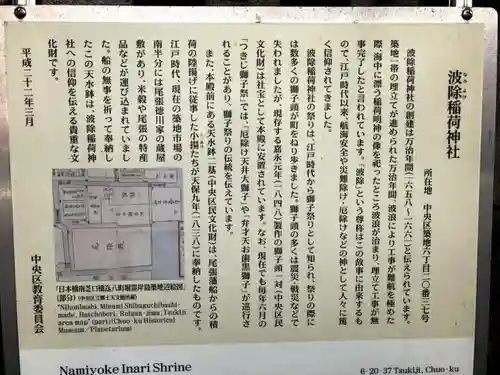 波除稲荷神社
所在地 中央区築地六丁目二〇番三七号
波除稲荷神社の創建は万治年間(一六五八~一六六一)と伝えられています。
築地一帯の埋立てが進められた万治年間、波浪により工事が難航を極めた
際、海中に漂う稲荷明神の像を祀ったところ波浪が治まり、埋立て工事が無
事完了したと言われています。「波除」という尊称はこの故事に由来するも
ので、江戸時代以来、航海安全や災難除け・厄除けなどの神として人々に篤
く信仰されてきました。
波除稲荷神社の祭りは、江戸時代から獅子祭りとして知られ、祭りの際に
は数多くの獅子頭が町をねり歩きました。獅子頭の多くは震災・戦災などで
失われましたが、現存する嘉永元年(一八四八)製作の獅子頭一対(中央区民
文化財)は社宝として本殿に安置されています。なお、現在でも毎年六月の
「つきじ獅子祭」では、「厄除け天井大獅子」や「弁才天お歯黒獅子」が巡行さ
れることがあり、獅子祭りの伝統を伝えています。
また、本殿前にある天水鉢二基(中央区民文化財)は、尾張藩船からの積
荷の陸揚げに従事した小揚たちが天保九年(一八三八)に奉納したものです。
江戸時代、現在の築地市場の
南半分には尾張徳川家の蔵屋
敷があり、米穀や尾張の特産
品などが運び込まれていまし
た。船の無事を祈って奉納し
たこの天水鉢は、波除稲荷神
社への信仰を伝える貴重な文
化財です。
平成二十二年三月
中央区教育委員会
「日本橋南芝口橋迄八町堀霊岸島築地辺絵図」
(部分)(中央区立郷土天文館所蔵)
"Nihonbashi Minami Shibaguchibashi-
made, Hatchobori, Reigan-jima, Tsukiji
area map" (part) (Chuo-ku Historical
Museum / Planetarium)
Namiyoke Inari Shrine
6-20-37 Tsukiji, Chuo-ku